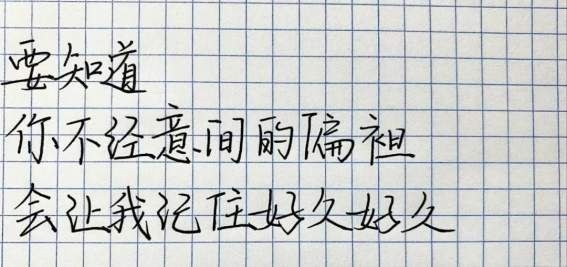 要知道
你不经意间的偏袒
会让我记住好久好久